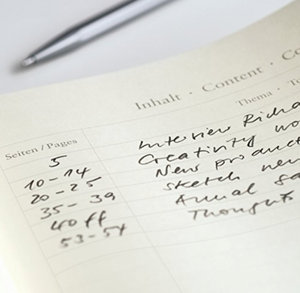 Inhalt · Content · Co
Seiten / Pages
Thema · Th
5 Interview Richa
10-14 Creativity wo
20-25 New product
35-39 sketch new
40 ff Annual sa
53-54 Thoughts